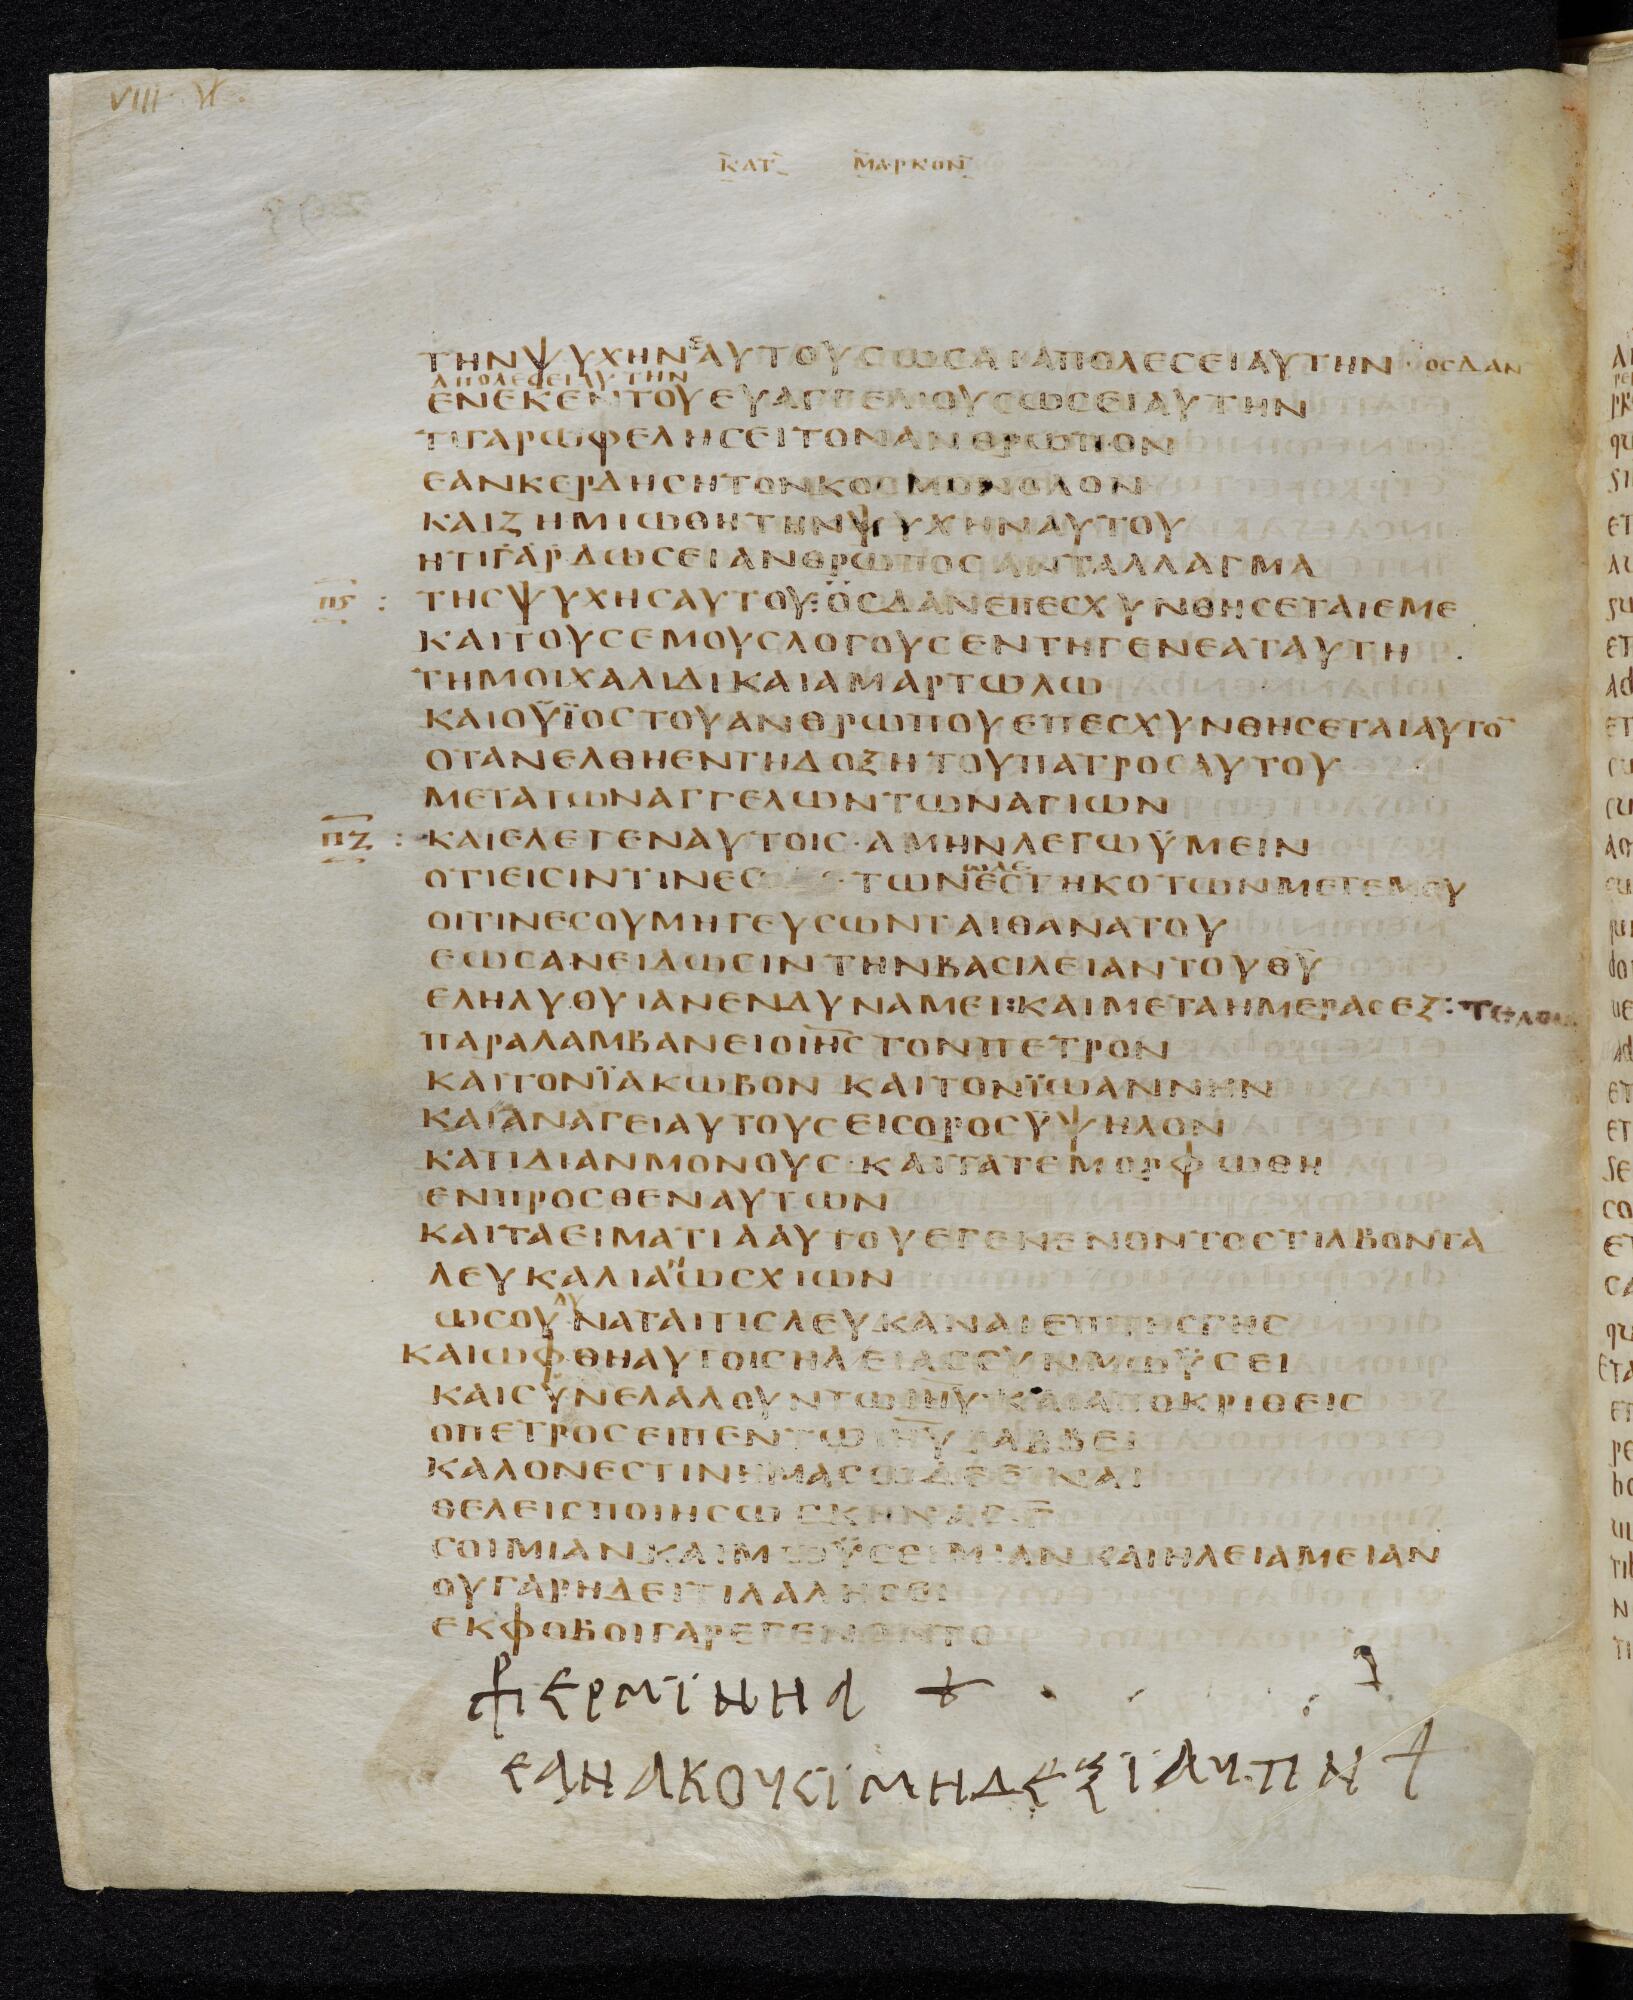 VIII
ΚΑΤ ΜΑΡΚΟΝ
ΤΗΝΨΥΧΗΝΑΥΤΟΥСΩСΑΙΑΠΟΛΕСΕΙΑΥΤΗΝ · ΟСΔΑΝ
ΑΠΟΛΕСΕΙΑΥΤΗΝ
ΕΝΕΚΕΝΤΟΥΕΥΑΓΓΕΛΙΟΥСΩСΕΙΑΥΤΗΝ
ΤΙΓΑΡΩΦΕΛΗСΕΙΤΟΝΑΝΘΡΩΠΟΝ
ΕΑΝΚΕΡΔΗСΗΤΟΝΚΟСΜΟΝΟΛΟΝ
ΚΑΙΖΗΜΙΩΘΗΤΗΝΨΥΧΗΝΑΥΤΟΥ
ΗΤΙΓΑΡΔΩСΕΙΑΝΘΡΩΠΟСΑΝΤΑΛΛΑΓΜΑ
Πϛ : ΤΗСΨΥΧΗСΑΥΤΟΥ:ΟСΔΑΝΕΠΕСΧΥΝΘΗСΕΤΑΙΕΜΕ
ΚΑΙΤΟΥСΕΜΟΥСΛΟΓΟΥСΕΝΤΗΓΕΝΕΑΤΑΥΤΗ
ΤΗΜΟΙΧΑΛΙΔΙΚΑΙΑΜΑΡΤΩΛΩ
ΚΑΙΟΥΪΟСΤΟΥΑΝΘΡΩΠΟΥΕΠΕСΧΥΝΘΗСΕΤΑΙΑΥΤΟ̅
ΟΤΑΝΕΛΘΗΕΝΤΗΔΟΞΗΤΟΥΠΑΤΡΟСΑΥΤΟΥ
ΜΕΤΑΤΩΝΑΓΓΕΛΩΝΤΩΝΑΓΙΩΝ
ΠΖ : ΚΑΙΕΛΕΓΕΝΑΥΤΟΙС·ΑΜΗΝΛΕΓΩΫΜΕΙΝ
ΩΔΕ
ΟΤΙΕΙСΙΝΤΙΝΕС ·ΤΩΝΕСΤΗΚΟΤΩΝΜΕΤΕΜΟΥ
ΟΙΤΙΝΕСΟΥΜΗΓΕΥСΩΝΤΑΙΘΑΝΑΤΟΥ
ΕΩСΑΝΕΙΔΩСΙΝΤΗΝΒΑСΙΛΕΙΑΝΤΟΥΘ̅Υ̅
ΕΛΗΛΥΘΥΙΑΝΕΝΔΥΝΑΜΕΙ:ΚΑΙΜΕΤΑΗΜΕΡΑСΕΖ:
ΠΑΡΑΛΑΜΒΑΝΕΙΟΙ̅Η̅С̅ΤΟΝΠΕΤΡΟΝ
ΚΑΙΤΟΝΪΑΚΩΒΟΝ ΚΑΙΤΟΝΪΩΑΝΝΗΝ
ΚΑΙΑΝΑΓΕΙΑΥΤΟΥСΕΙСΟΡΟСΫΨΗΛΟΝ
ΚΑΤΙΔΙΑΝΜΟΝΟΥС·ΚΑΙΤΑΤΕΜΟΡΦΩΘΗ
ΕΝΠΡΟСΘΕΝΑΥΤΩΝ
ΚΑΙΤΑΕΙΜΑΤΙΑΑΥΤΟΥΕΓΕΝΕΝΟΝΤΟСΤΙΛΒΟΝΤΑ
ΛΕΥΚΑΛΙΑΝΩСΧΙΩΝ
ΔΥ
ΩСΟΥΝΑΤΑΙΤΙСΛΕΥΚΑΝΑΙΕΠΙΤΗСΓΗС
ΚΑΙΩΦΘΗΑΥΤΟΙСΗΛΕΙΑССΥΝΜΩΫСΕΙ
ΚΑΙСΥΝΕΛΑΛΟΥΝΤΩΙ̅Η̅Υ̅·ΚΑΙΑΠΟΚΡΙΘΕΙС
ΟΠΕΤΡΟСΕΙΠΕΝΤΩΙ̅Η̅Υ̅ΡΑΒΒΕΙ
ΚΑΛΟΝΕСΤΙΝΗΜΑСΩΔΕΕΙΝΑΙ
ΘΕΛΕΙСΠΟΙΗСΩСΚΗΝΑС·Γ̅
СΟΙΜΙΑΝΚΑΙΜΩΫСΕΙΜΙΑΝΚΑΙΗΛΕΙΑΜΕΙΑΝ
ΟΥΓΑΡΗΔΕΙΤΙΛΑΛΗСΕΙ
ΕΚΦΟΒΟΙΓΑΡΕΓΕΝΟΝΤΟ
⳨ ΕΡΜΪΝΗΑ +
ΕΑΝΑΚΟΥСΪΜΗΔΕΞΪΑΥΠΗ +